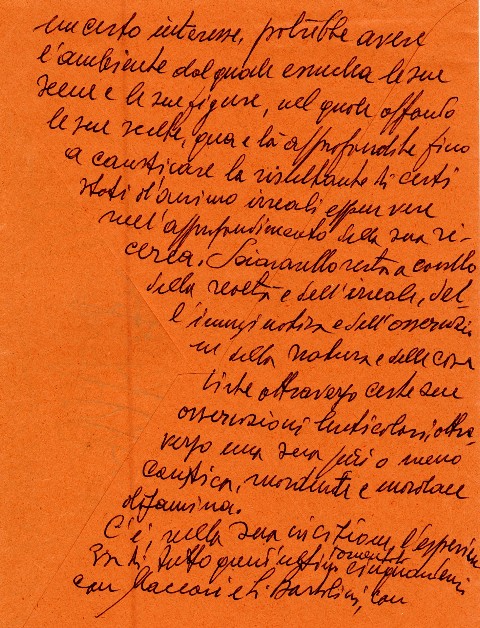 un certo interesse, potrebbe avere
l'ambiente dal quale esucchia le sue
scene e le sue figure, nel quale affonda
le sue scelte, qua e là approfondite fino
a causticare la risultante di certi
stati d'animo irreali eppur vere
nell'approfondimento della sua ri-
cerca. resta a cavallo
della realtà e dell'irreale, del
l'immaginativa e dell'osservazio
ne della natura e delle cose
viste attraverso certe sue
osservazioni lenticolari, attra-
verso una sua più o meno
caustica, mordente e mordace
disamina.
C'è, nella sua incisione, l'esperien
za di tutto quest'ultimo cinquantennio
con Maccari e L. Bartolini, con